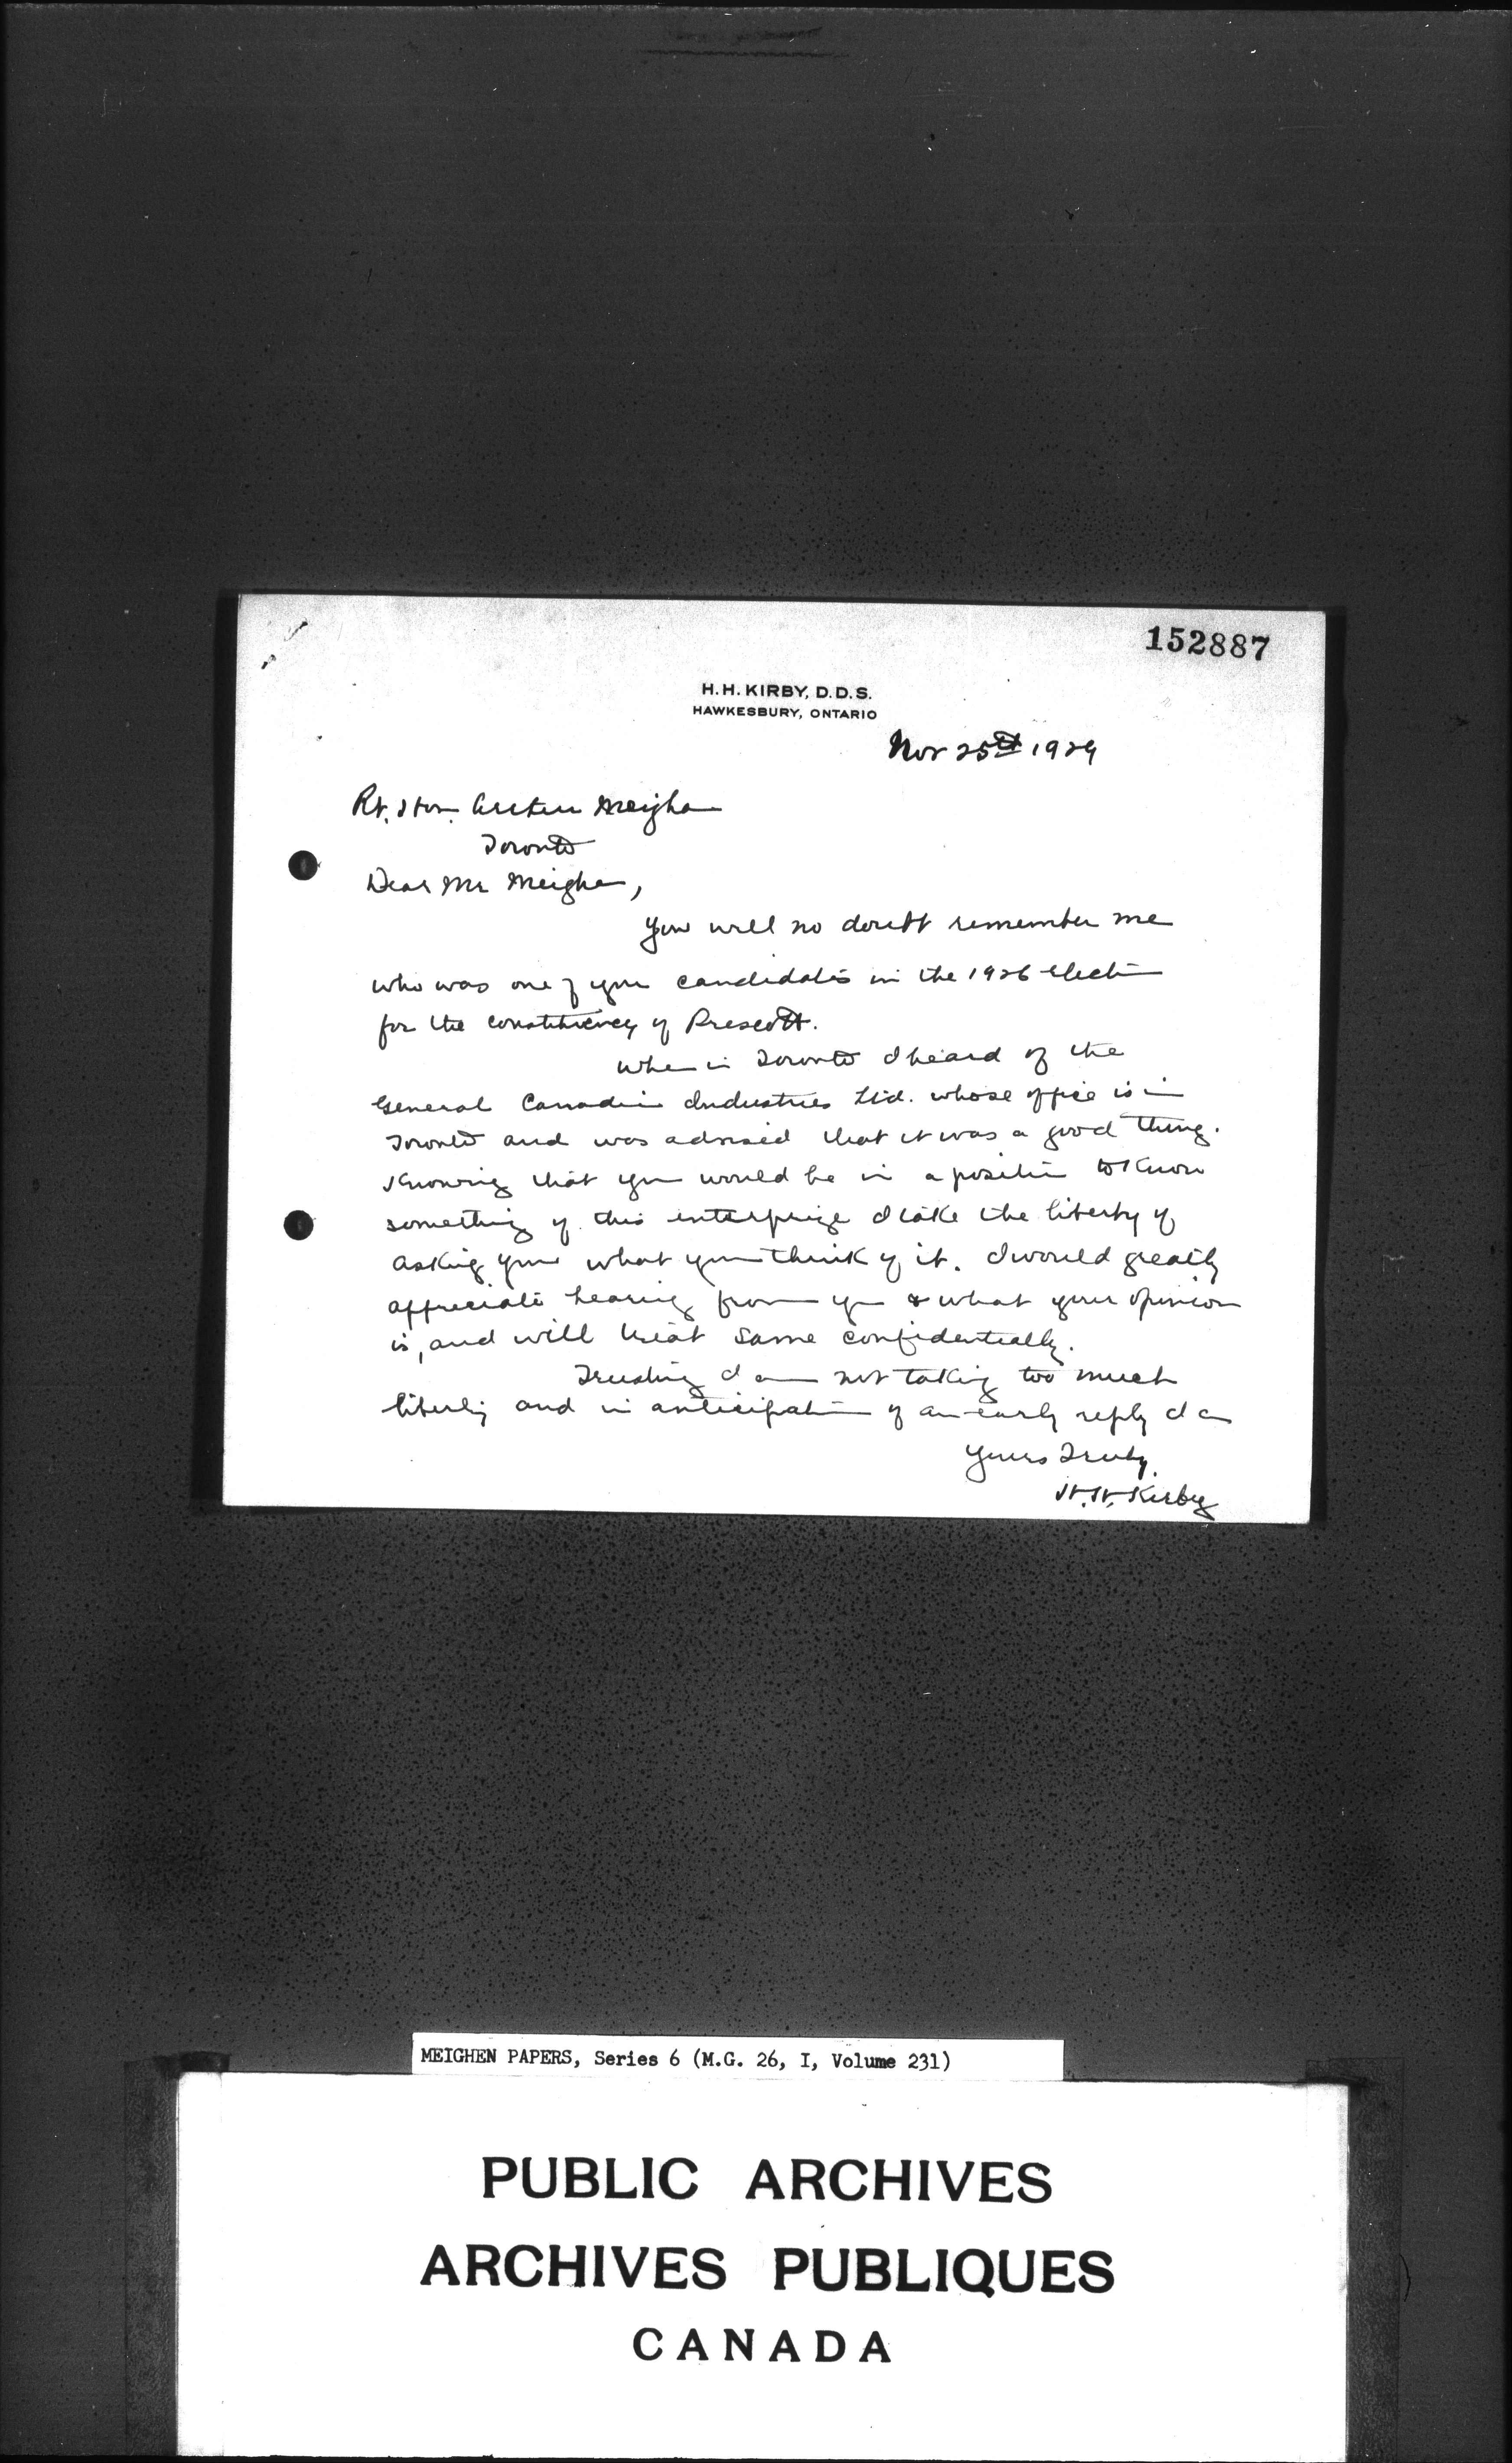 152887
H. H. KIRBY, D.D.S.
HAWKESBURY, ONTARIO
Nov 25th 1929
Rt. Hon. Arthur Meighen
Toronto
Dear Mr Meighen,
You will no doubt remember me
who was one of your candidates in the 1926 election
for the constituency of Prescott.
When in Toronto I heard of the
General Canadian Industries Ltd. whose office is in
Toronto and was advised that it was a good thing.
Knowing that you would be in a position to know
something of this enterprize I take the liberty of
asking you what you think of it. I would greatly
appreciate hearing from you & what your opinion
is, and will treat same confidentially.
Trusting I am not taking too much
liberty and in anticipation of an early reply I am
Yours Truly,
H. H. Kirby
MEIGHEN PAPERS, Series 6 (M.G. 26, I, Volume 231)
PUBLIC ARCHIVES
ARCHIVES PUBLIQUES
CANADA